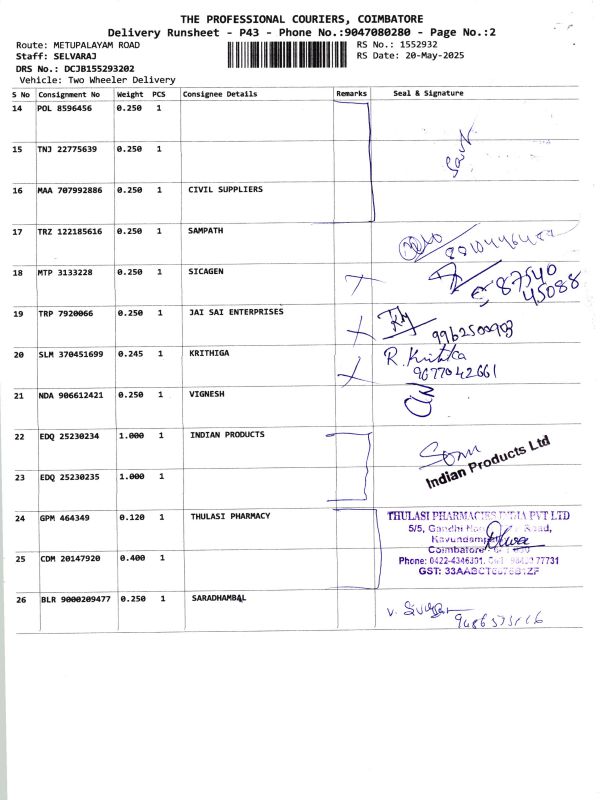 THE PROFESSIONAL COURIERS, COIMBATORE
Delivery Runsheet - P43 - Phone No.:9047080280 - Page No.:2
Route: METUPALAYAM ROAD RS No.: 1552932
Staff: SELVARAJ RS Date: 20-May-2025
DRS No.: DCJB155293202
Vehicle: Two Wheeler Delivery
S No Consignment No Weight PCS Consignee Details Remarks Seal & Signature
14 POL 8596456 0.250 1
15 TNJ 22775639 0.250 1
16 MAA 707992886 0.250 1 CIVIL SUPPLIERS
17 TRZ 122185616 0.250 1 SAMPATH
18 MTP 3133228 0.250 1 SICAGEN 87540
45088
19 TRP 7920066 0.250 1 JAI SAI ENTERPRISES
20 SLM 370451699 0.245 1 KRITHIGA R. Krithika
9677042661
21 NDA 906612421 0.250 1 VIGNESH
22 EDQ 25230234 1.000 1 INDIAN PRODUCTS
Indian Products Ltd
23 EDQ 25230235 1.000 1
24 GPM 464349 0.120 1 THULASI PHARMACY THULASI PHARMACIES INDIA PVT LTD
5/5, Gandhi Road,
25 CDM 20147920 0.400 1 Coimbatore
Phone: 0422-4346301, 77731
GST:
26 BLR 9000209477 0.250 1 SARADHAMBAL